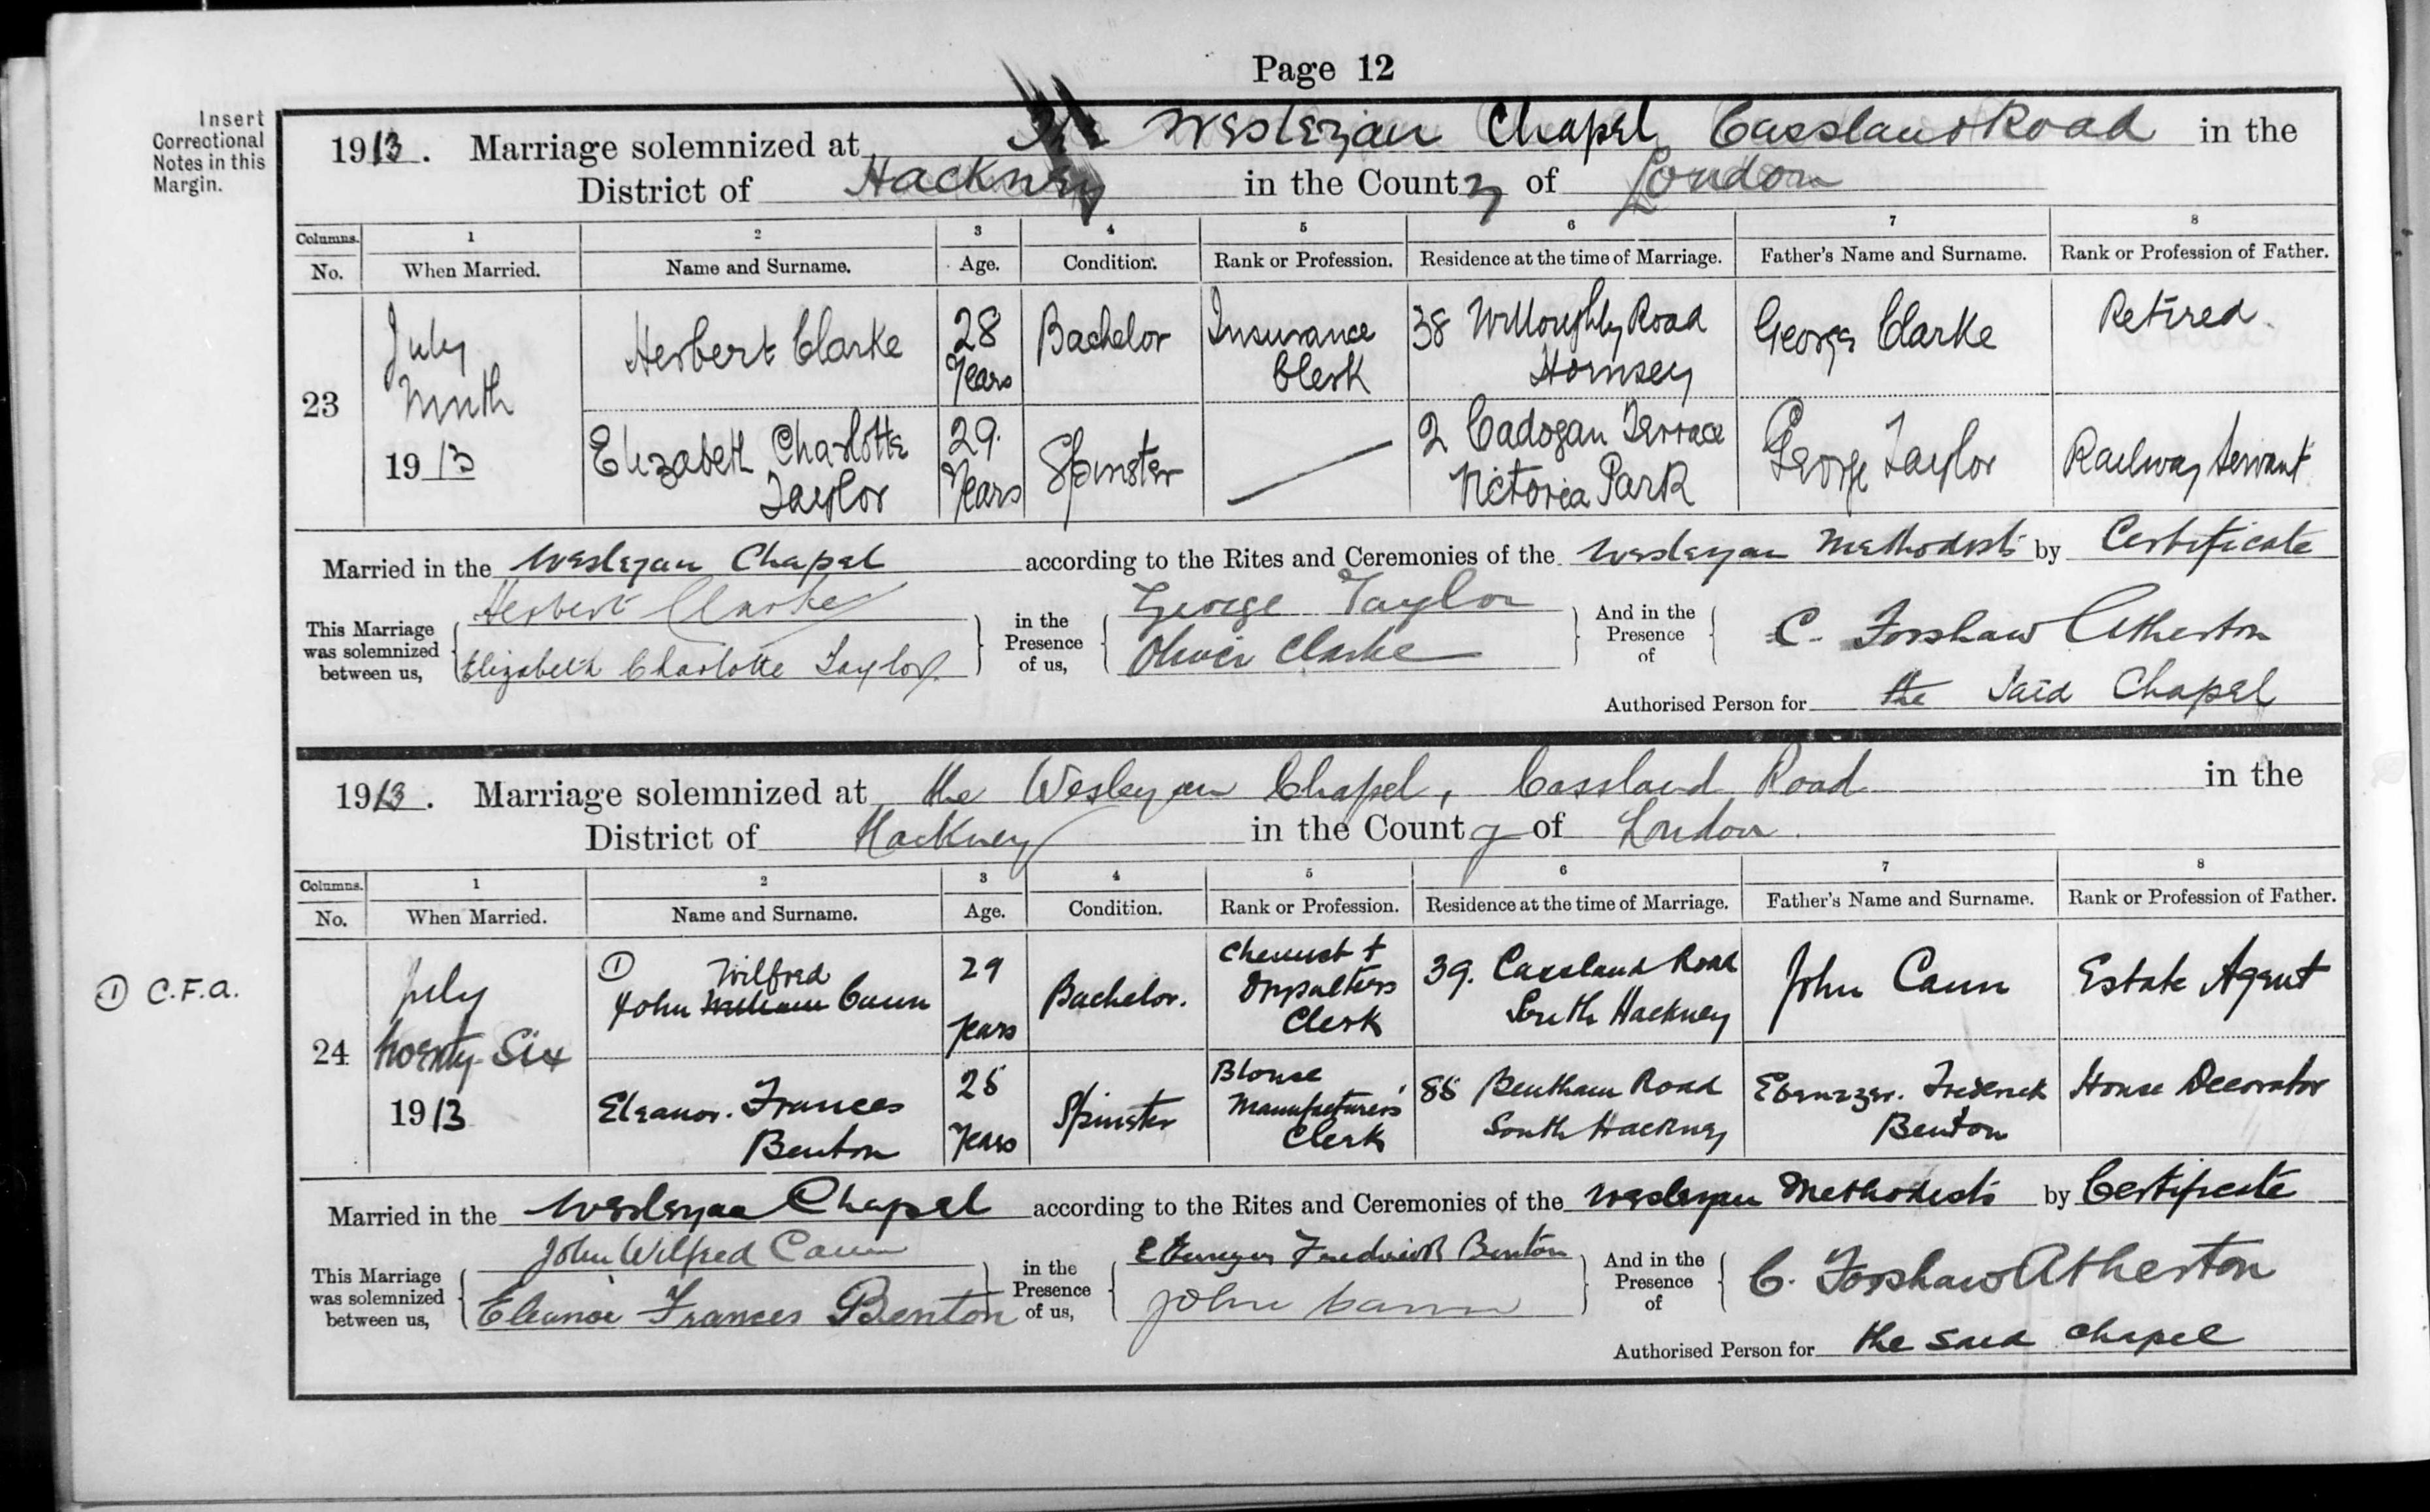 Page 12
Insert
Correctional
Notes in this
Margin.
1913. Marriage solemnized at The Wesleyan Chapel Cassland Road in the
District of Hackney in the County of London
Columns. 1 2 3 4 5 6 7 8
No. When Married. Name and Surname. Age. Condition. Rank or Profession. Residence at the time of Marriage. Father's Name and Surname. Rank or Profession of Father.
23
July
Ninth
1913
Herbert Clarke
28
Years
Bachelor
Insurance
Clerk
38 Willoughby Road
Hornsey
George Clarke
Retired
Elizabeth Charlotte
Taylor
29
Years
Spinster
2 Cadogan Terrace
Victoria Park
George Taylor
Railway Servant
Married in the Wesleyan Chapel according to the Rites and Ceremonies of the Wesleyan Methodists by Certificate
This Marriage
was solemnized
between us,
Herbert Clarke
Elizabeth Charlotte Taylor
in the
Presence
of us,
George Taylor
Oliver Clarke
And in the
Presence
of
C. Forshaw Atherton
Authorised Person for the said Chapel
1913. Marriage solemnized at the Wesleyan Chapel, Cassland Road in the
District of Hackney in the County of London
Columns. 1 2 3 4 5 6 7 8
No. When Married. Name and Surname. Age. Condition. Rank or Profession. Residence at the time of Marriage. Father's Name and Surname. Rank or Profession of Father.
① C.F.a.
24
July
twenty Six
1913
① Wilfred
John William Cann
29
years
Bachelor.
Chemist +
Clerk
39. Cassland Road
South Hackney
John Cann
Estate Agent
Eleanor. Frances
Benton
Years
Spinster
Blouse
Manufacturers'
Clerk
Bentham Road
South Hackney
Ebenezer. Frederick
Benton
House Decorator
Married in the Wesleyan Chapel according to the Rites and Ceremonies of the Wesleyan Methodists by Certificate
This Marriage
was solemnized
between us,
John Wilfred Cann
Eleanor Frances Benton
in the
Presence
of us,
Ebenezer Frederick Benton
John Cann
And in the
Presence
of
C. Forshaw Atherton
Authorised Person for the said chapel